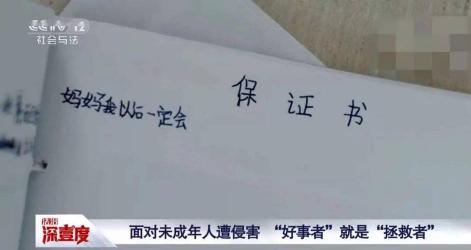 12
社会与法
保证书
妈妈我以后一定会
深壹度
面对未成年人遭侵害 “好事者”就是“拯救者”